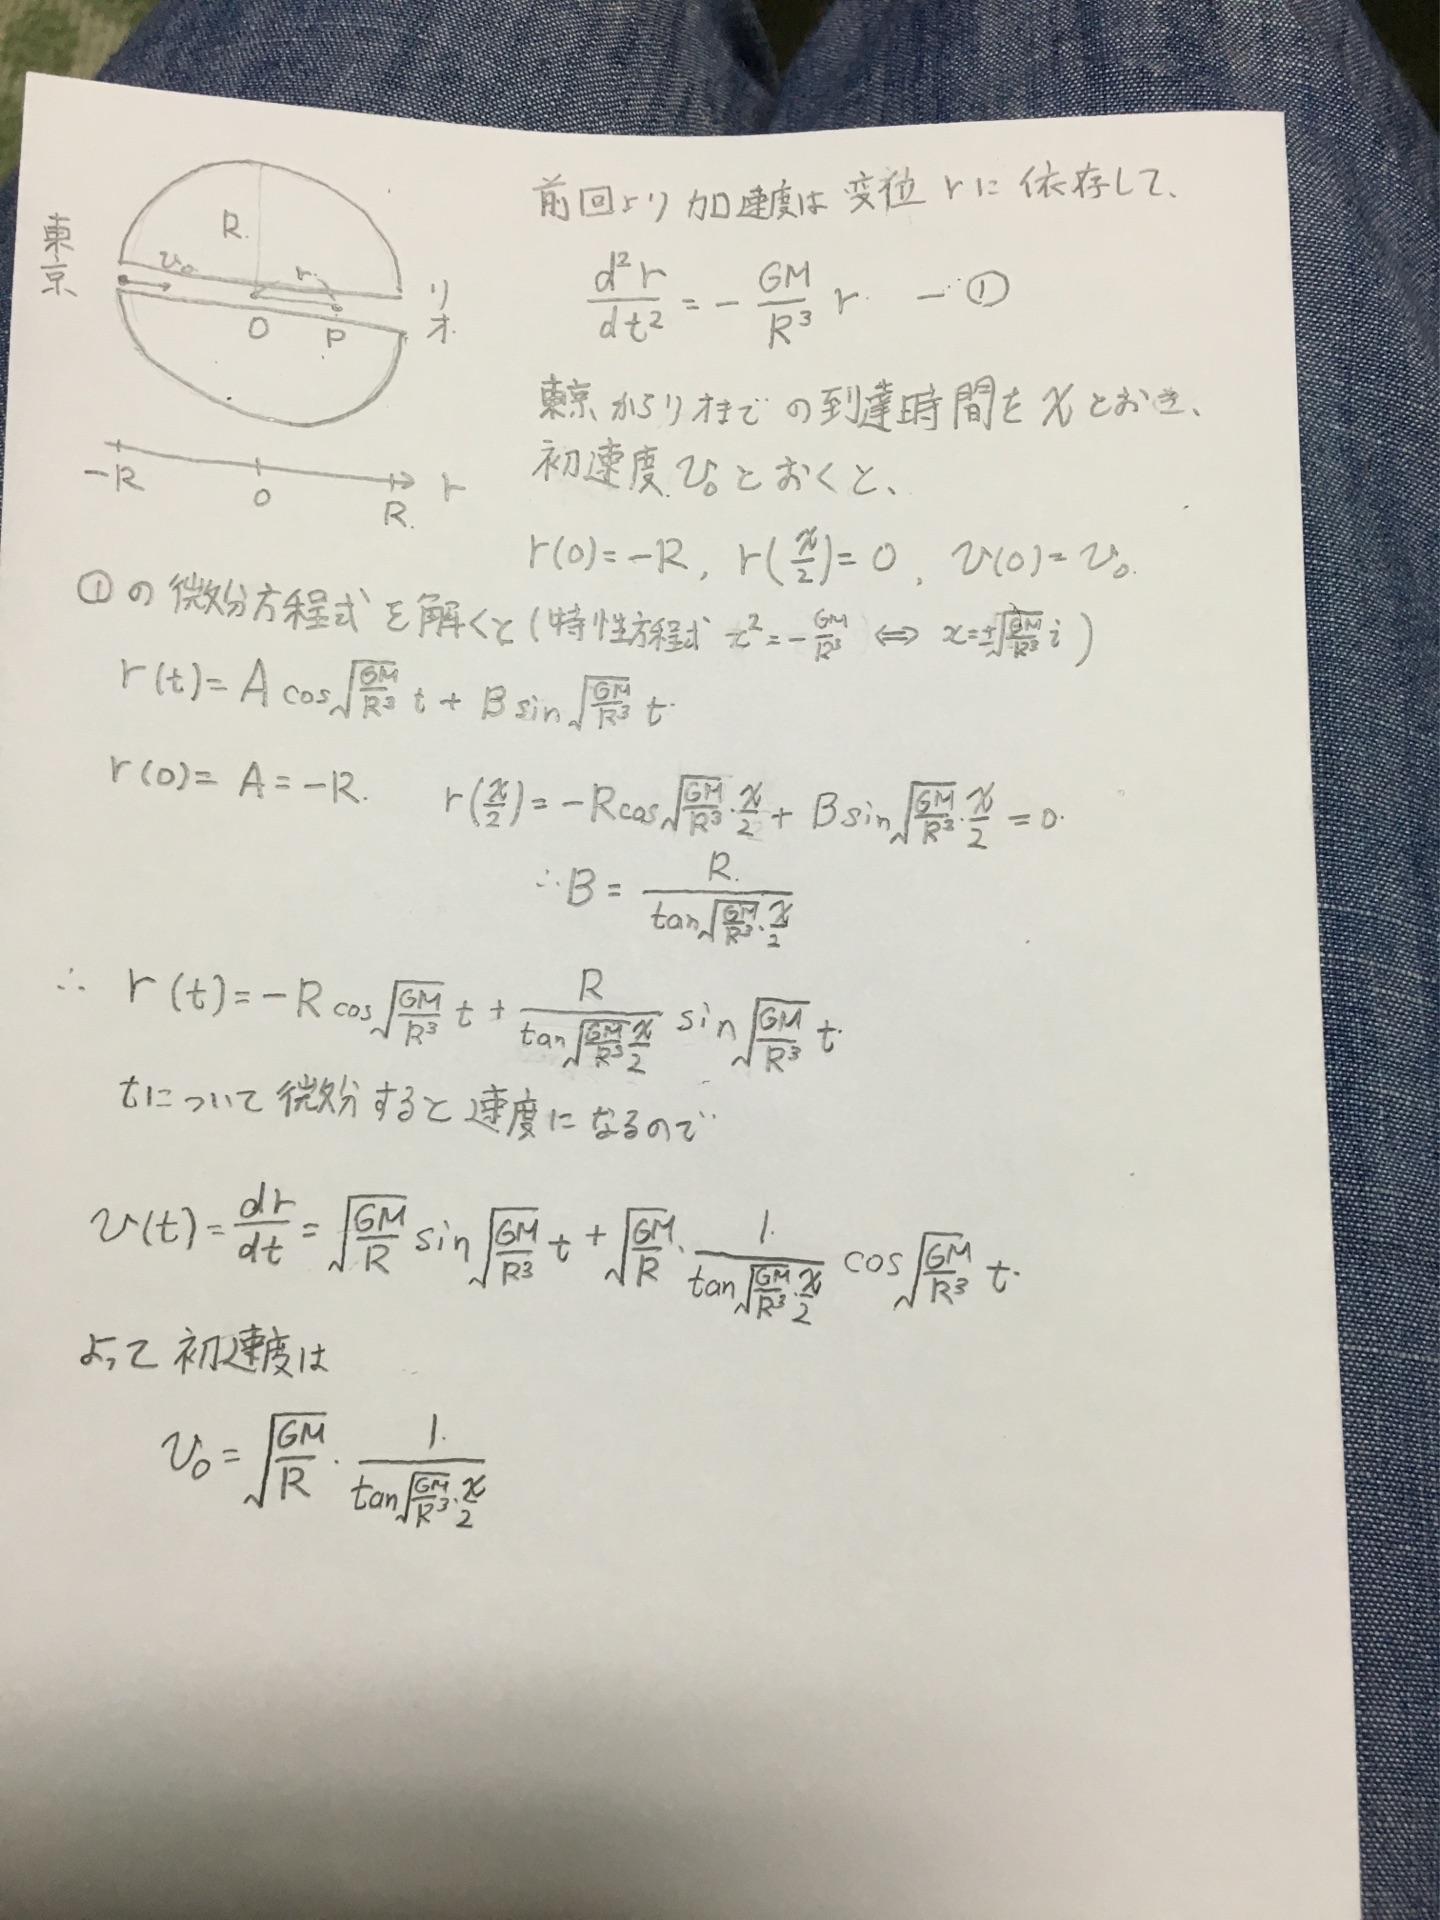 東京
リオ
R.
v₀
r
O
P
-R 0 R. r
前回より加速度は変位rに依存して、
d²r/dt² = - GM/R³ r. - ①
東京からリオまでの到達時間をxとおき、
初速度v₀とおくと、
r(0)=-R, r(x/2)=0, v(0)=v₀.
①の微分方程式を解くと(特性方程式 x²=-GM/R³ ⇔ x=±√(GM/R³) i)
r(t)= A cos√(GM/R³) t + B sin√(GM/R³) t.
r(0)= A = -R. r(x/2)= -R cos√(GM/R³)・x/2 + B sin√(GM/R³)・x/2 = 0.
∴ B = R. / tan√(GM/R³)・x/2
∴ r(t)= -R cos√(GM/R³) t + R / (tan√(GM/R³) x/2) sin√(GM/R³) t.
tについて微分すると速度になるので
v(t)= dr/dt = √(GM/R) sin√(GM/R³) t + √(GM/R)・1. / (tan√(GM/R³)・x/2) cos√(GM/R³) t.
よって初速度は
v₀ = √(GM/R)・1. / (tan√(GM/R³)・x/2)